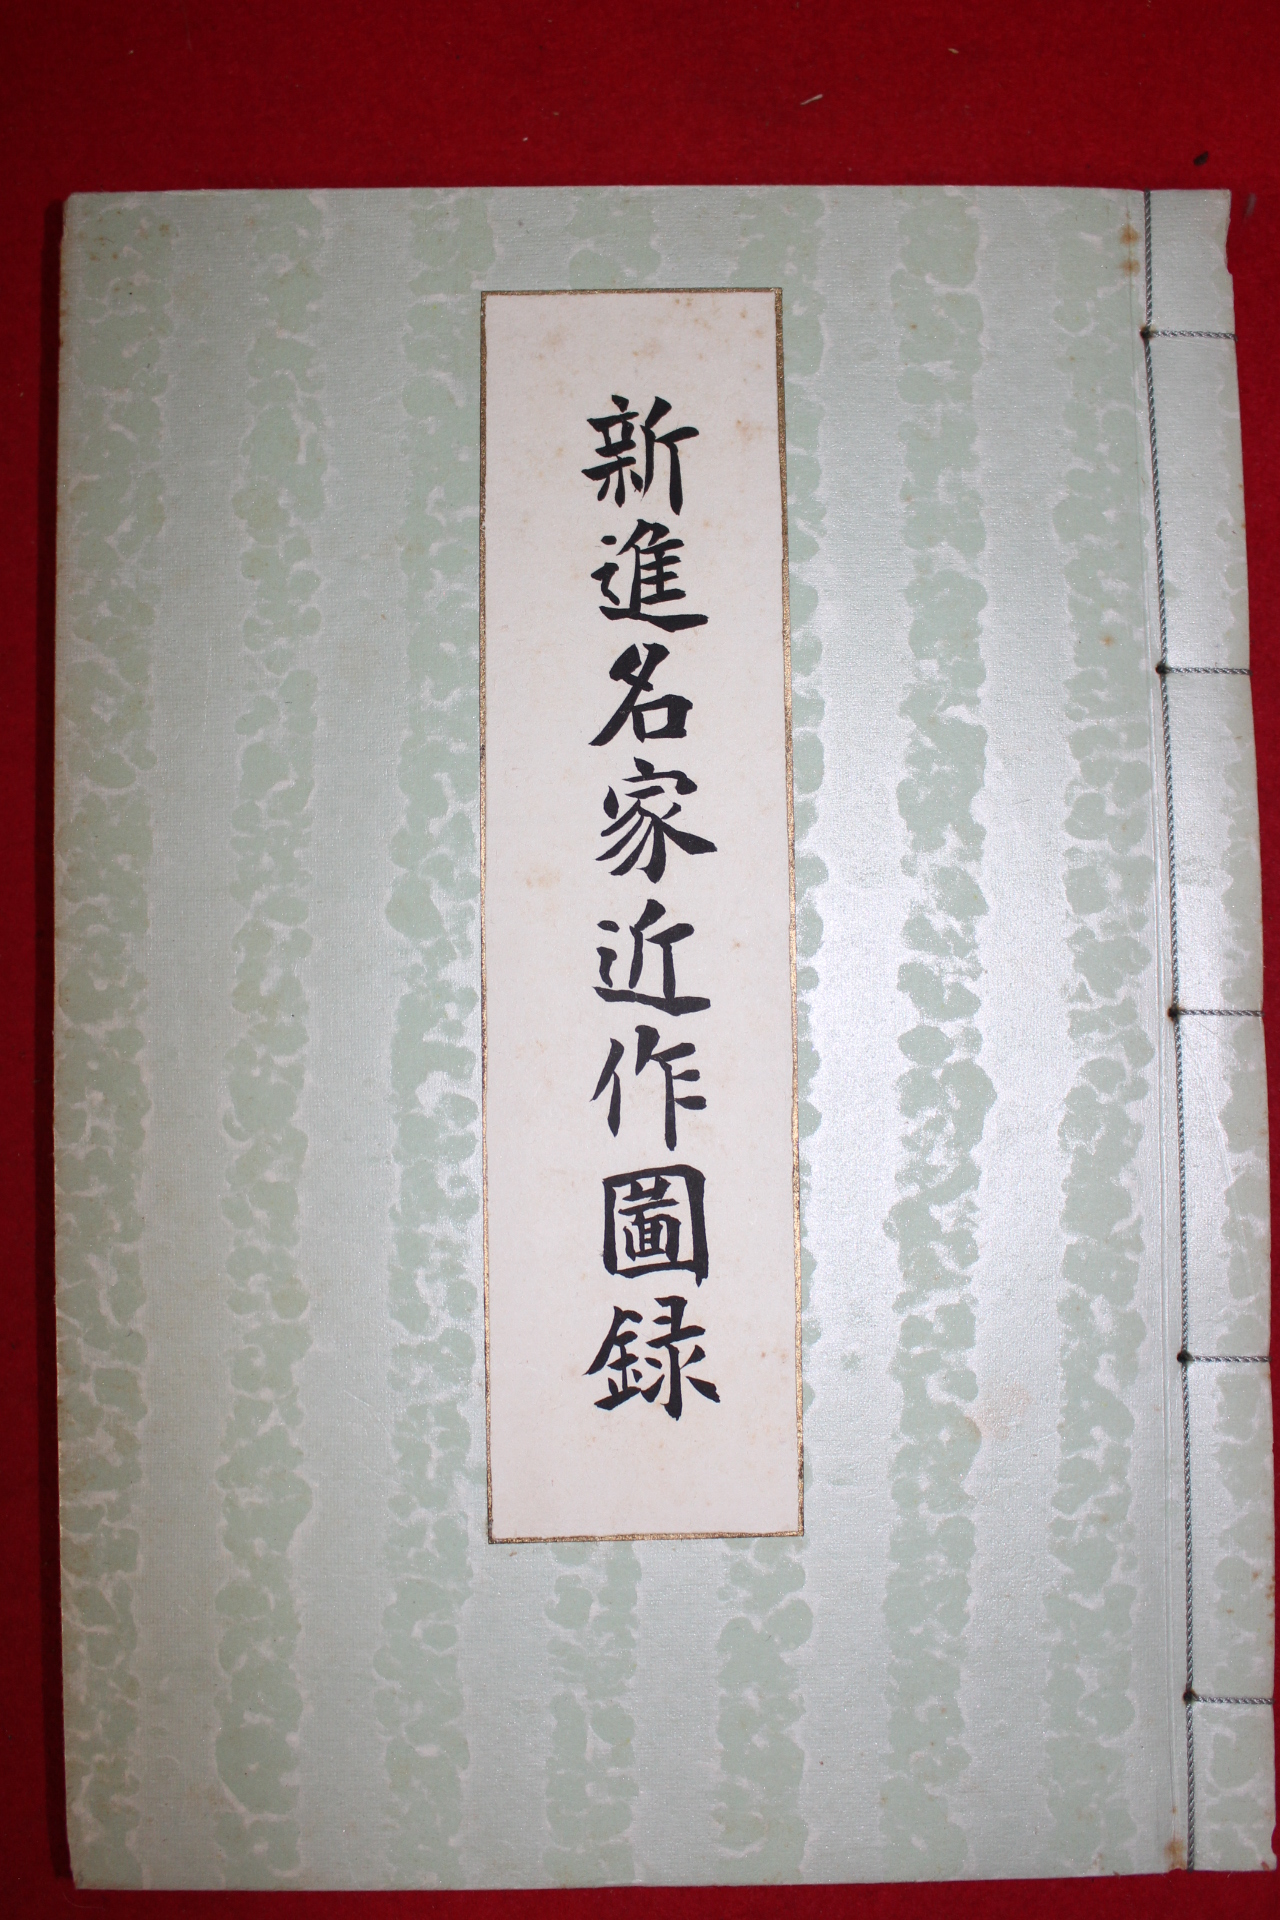 新進名家近作圖録